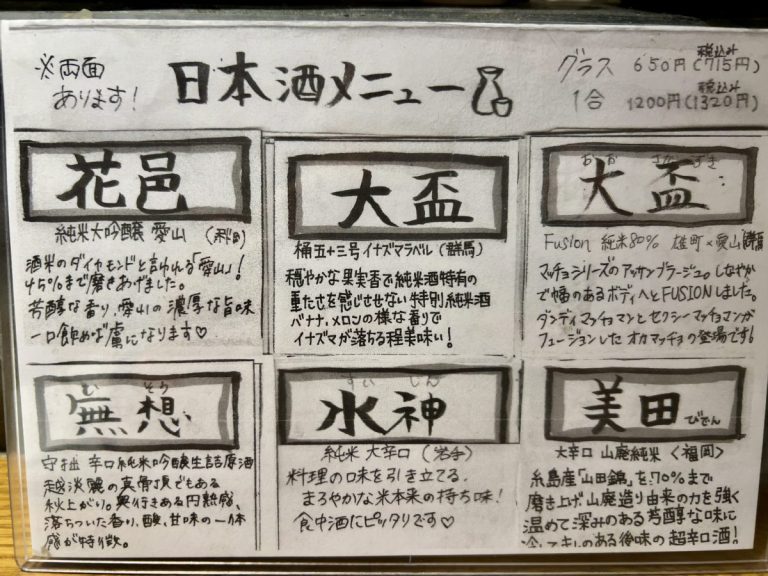 ※両面
あります!
日本酒メニュー
グラス 650円(税込み715円)
1合 1200円(税込み1320円)
花邑
純米大吟醸 愛山 (秋田)
酒米のダイヤモンドと言われる「愛山」!
45%まで磨きあげました。
芳醇な香り、愛山の濃厚な旨味
一口飲めば虜になります♡
大盃
桶五+三号イナズマラベル(群馬)
穏やかな果実香で純米酒特有の
重たさを感じさせない特別純米酒
バナナ、メロンの様な香りで
イナズマが落ちる程美味い!
おお さかずき
大盃
Fusion 純米80% 雄町×愛山(群馬)
マッチョシリーズのアッサンブラージュ。しなやか
で幅のあるボディへとFUSIONしました。
ダンディマッチョマンとセクシーマッチョマンが
フュージョンしたオカマッチョの登場です!
むそう
無想
守拙 辛口純米吟醸生詰原酒
越淡麗の真骨頂でもある
秋上がり。奥行きある円熟感、
落ちついた香り、酸、甘味の一体
感が特徴。
すいじん
水神
純米 大辛口 (岩手)
料理の味を引き立てる、
まろやかな米本来の持ち味!
食中酒にピッタリです♡
美田
びでん
大辛口 山廃純米 〈福岡〉
糸島産「山田錦」を70%まで
磨き上げ山廃造り由来の力を強く
温めて深みのある芳醇な味に
のある後味の超辛口酒!